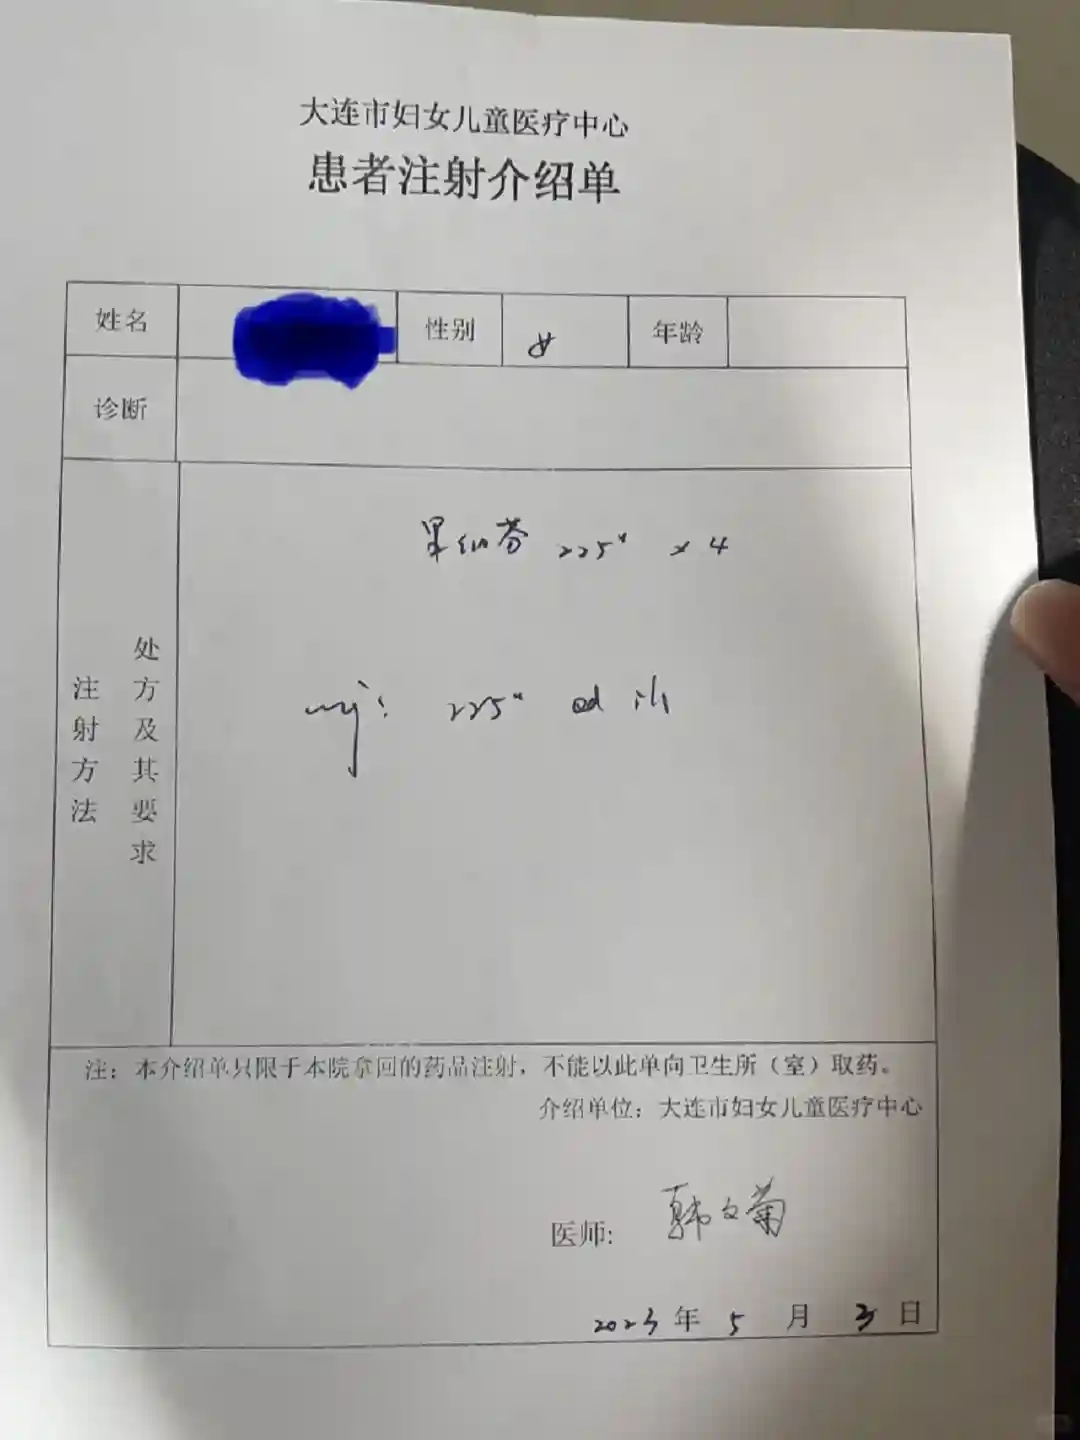 大连市妇女儿童医疗中心
患者注射介绍单
姓名 性别 女 年龄
诊断
注射方法 处方及其要求
果纳芬 225ᵘ × 4
225ᵘ qd ih
注：本介绍单只限于本院拿回的药品注射，不能以此单向卫生所（室）取药。
介绍单位：大连市妇女儿童医疗中心
医师: 韩文菊
2023 年 5 月 3 日